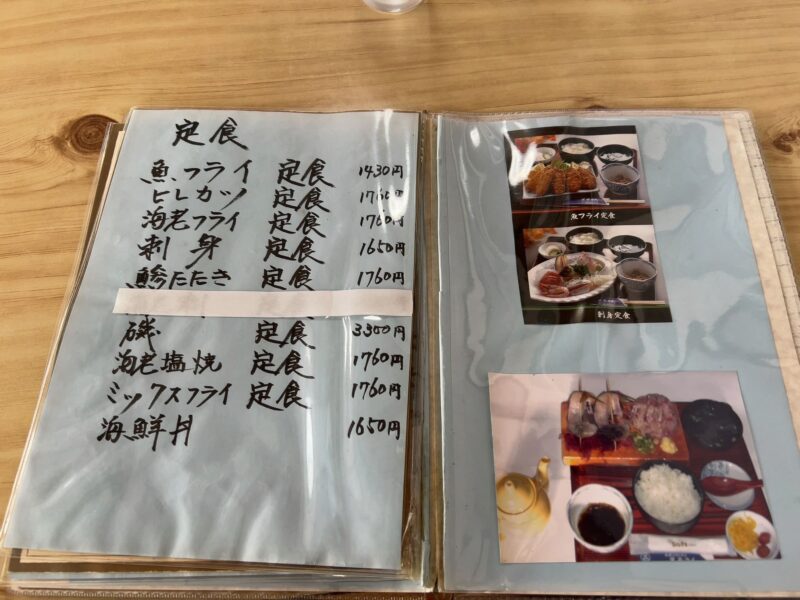 定食
魚フライ 定食 1430円
ヒレカツ 定食 1760円
海老フライ 定食 1760円
刺身 定食 1650円
鯵たたき 定食 1760円
磯 定食 3300円
海老塩焼 定食 1760円
ミックスフライ 定食 1760円
海鮮丼 1650円
魚フライ定食
刺身定食